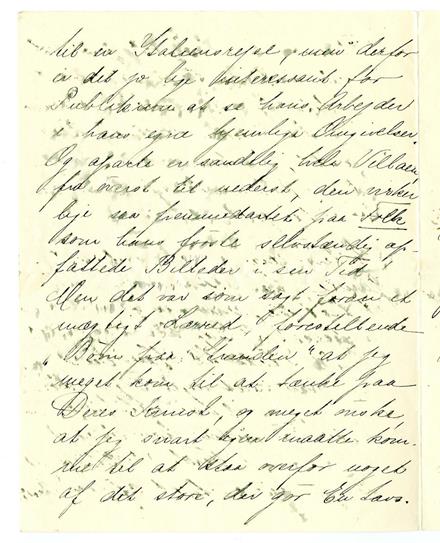 til en Italiensrejse, men derfor
er det jo lige interessant for
Publikum at se hans Arbejder
i hans egne hjemlige Omgivelser.
Og aparte er sandelig hele Villaen
fra øverst til nederst, den virker
lige saa fremmedartet paa Folk
som hans første selvstændig op-
fattede Billeder i sin Tid.
Men det var som sagt foran et
mægtigt Lærred, forestillende
"Børn paa Stranden" at jeg
meget kom til at tænke paa
Deres Kunst, og meget ønske
at jeg snart igen maatte kom-
me til at staa overfor noget
af det store, der gør En Lavs.